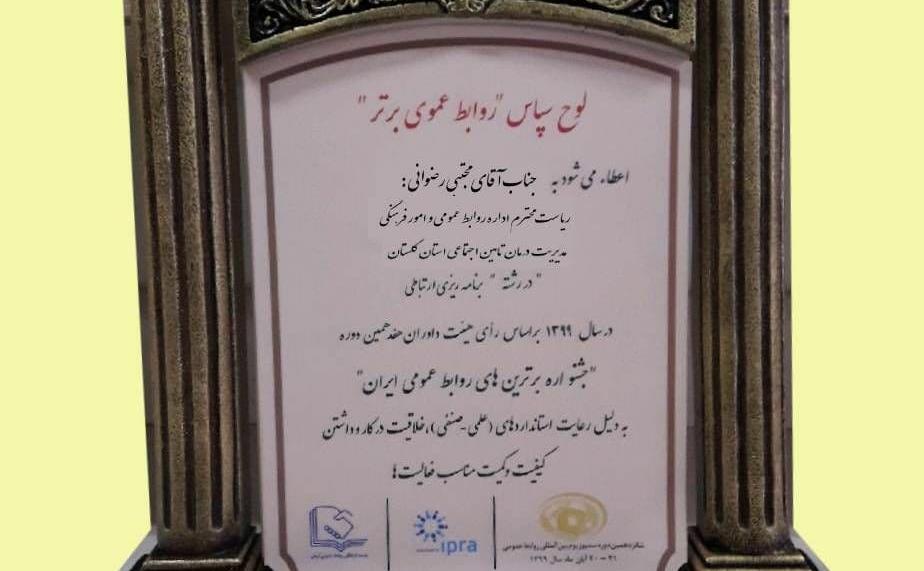 لوح سپاس "روابط عموی برتر"
اعطاء می شود به جناب آقای مجتبی رضوانی:
ریاست محترم اداره روابط عمومی و امور فرهنگی
مدیریت درمان تامین اجتماعی استان گلستان
"در رشته " برنامه ریزی ارتباطی
در سال ۱۳۹۹ براساس رأی هیئت داوران هفدهمین دوره
"جشنواره برترین های روابط عمومی ایران"
به دلیل رعایت استانداردهای (علمی-صنفی)، خلاقیت در کار و داشتن
کیفیت و کمیت مناسب فعالیت ها
ipra
شانزدهمین دوره سمپوزیوم بین المللی روابط عمومی
۲۰-۲۱ آبان ماه سال ۱۳۹۹